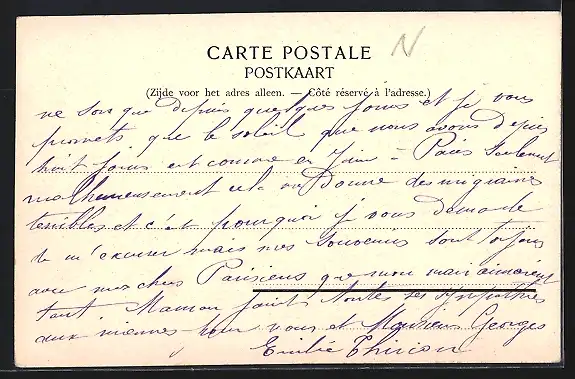 N
CARTE POSTALE
POSTKAART
(Zijde voor het adres alleen. — Côté réservé à l'adresse.)
ne sors que depuis quelques jours et je vous
promets que le soleil que nous avons depuis
huit jours est comme en Juin à Paris seulement
malheureusement cela me donne des migraines
terribles et c'est pourquoi je vous demande
de m'excuser mais mes souvenirs sont toujours
avec mes chers Parisiens que mon mari aimaient
tant. Maman joint toutes ses sympathies
aux miennes pour vous et Monsieur Georges
Emilie Thirion